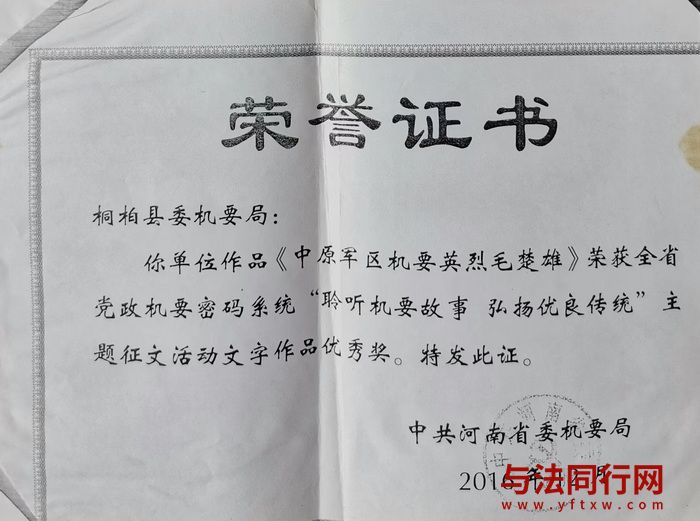 荣誉证书
桐柏县委机要局：
你单位作品《中原军区机要英烈毛楚雄》荣获全省
党政机要密码系统“聆听机要故事 弘扬优良传统”主
题征文活动文字作品优秀奖。特发此证。
中共河南省委机要局
2016年12月
与法同行网
www.yftxw.com